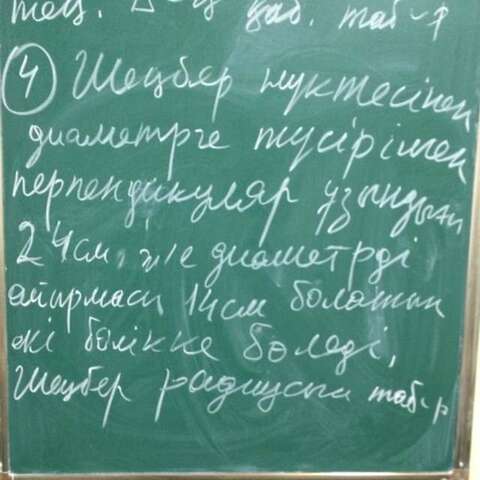 тең. қаб. таб-р
④ Шеңбер нүктесінен
диаметрге түсірілген
перпендикуляр ұзындығы
24см, же диаметрді
айырмасы 14см болатын
екі бөлікке бөледі,
Шеңбер радиусын таб-р